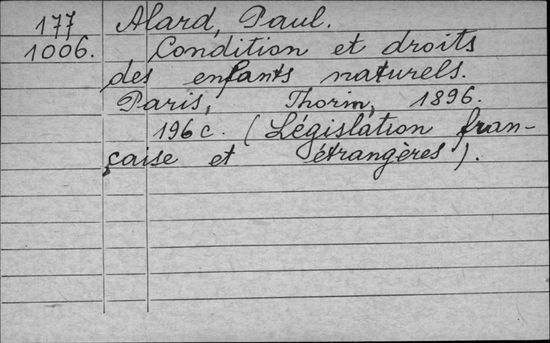 177 Alard, Paul.
1006. Condition et droits
des enfants naturels.
Paris, Thorin, 1896.
196 c. (Législation fran-
çaise et étrangères).